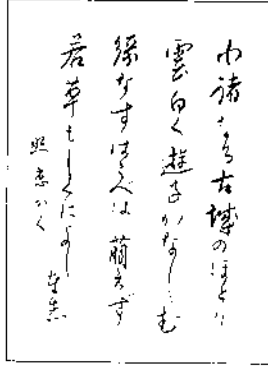 小諸なる古城のほとり
雲白く遊子かなしむ
緑なすはこべは萌えず
若草もしくによし
かく